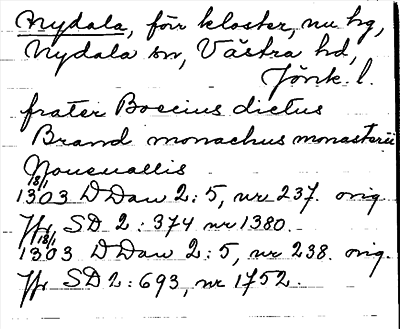 Nydala, förr kloster, nu hg,
Nydala sn, Västra hd,
Jönk. l.
frater Boecius dictus
Brand monachus monasterii
Nouevallis
18/1
1303 DDan 2:5, nr 237. orig.
Jfr SD 2:374 nr 1380.
18/1
1303 DDan 2:5, nr 238. orig.
Jfr SD 2:693, nr 1752.